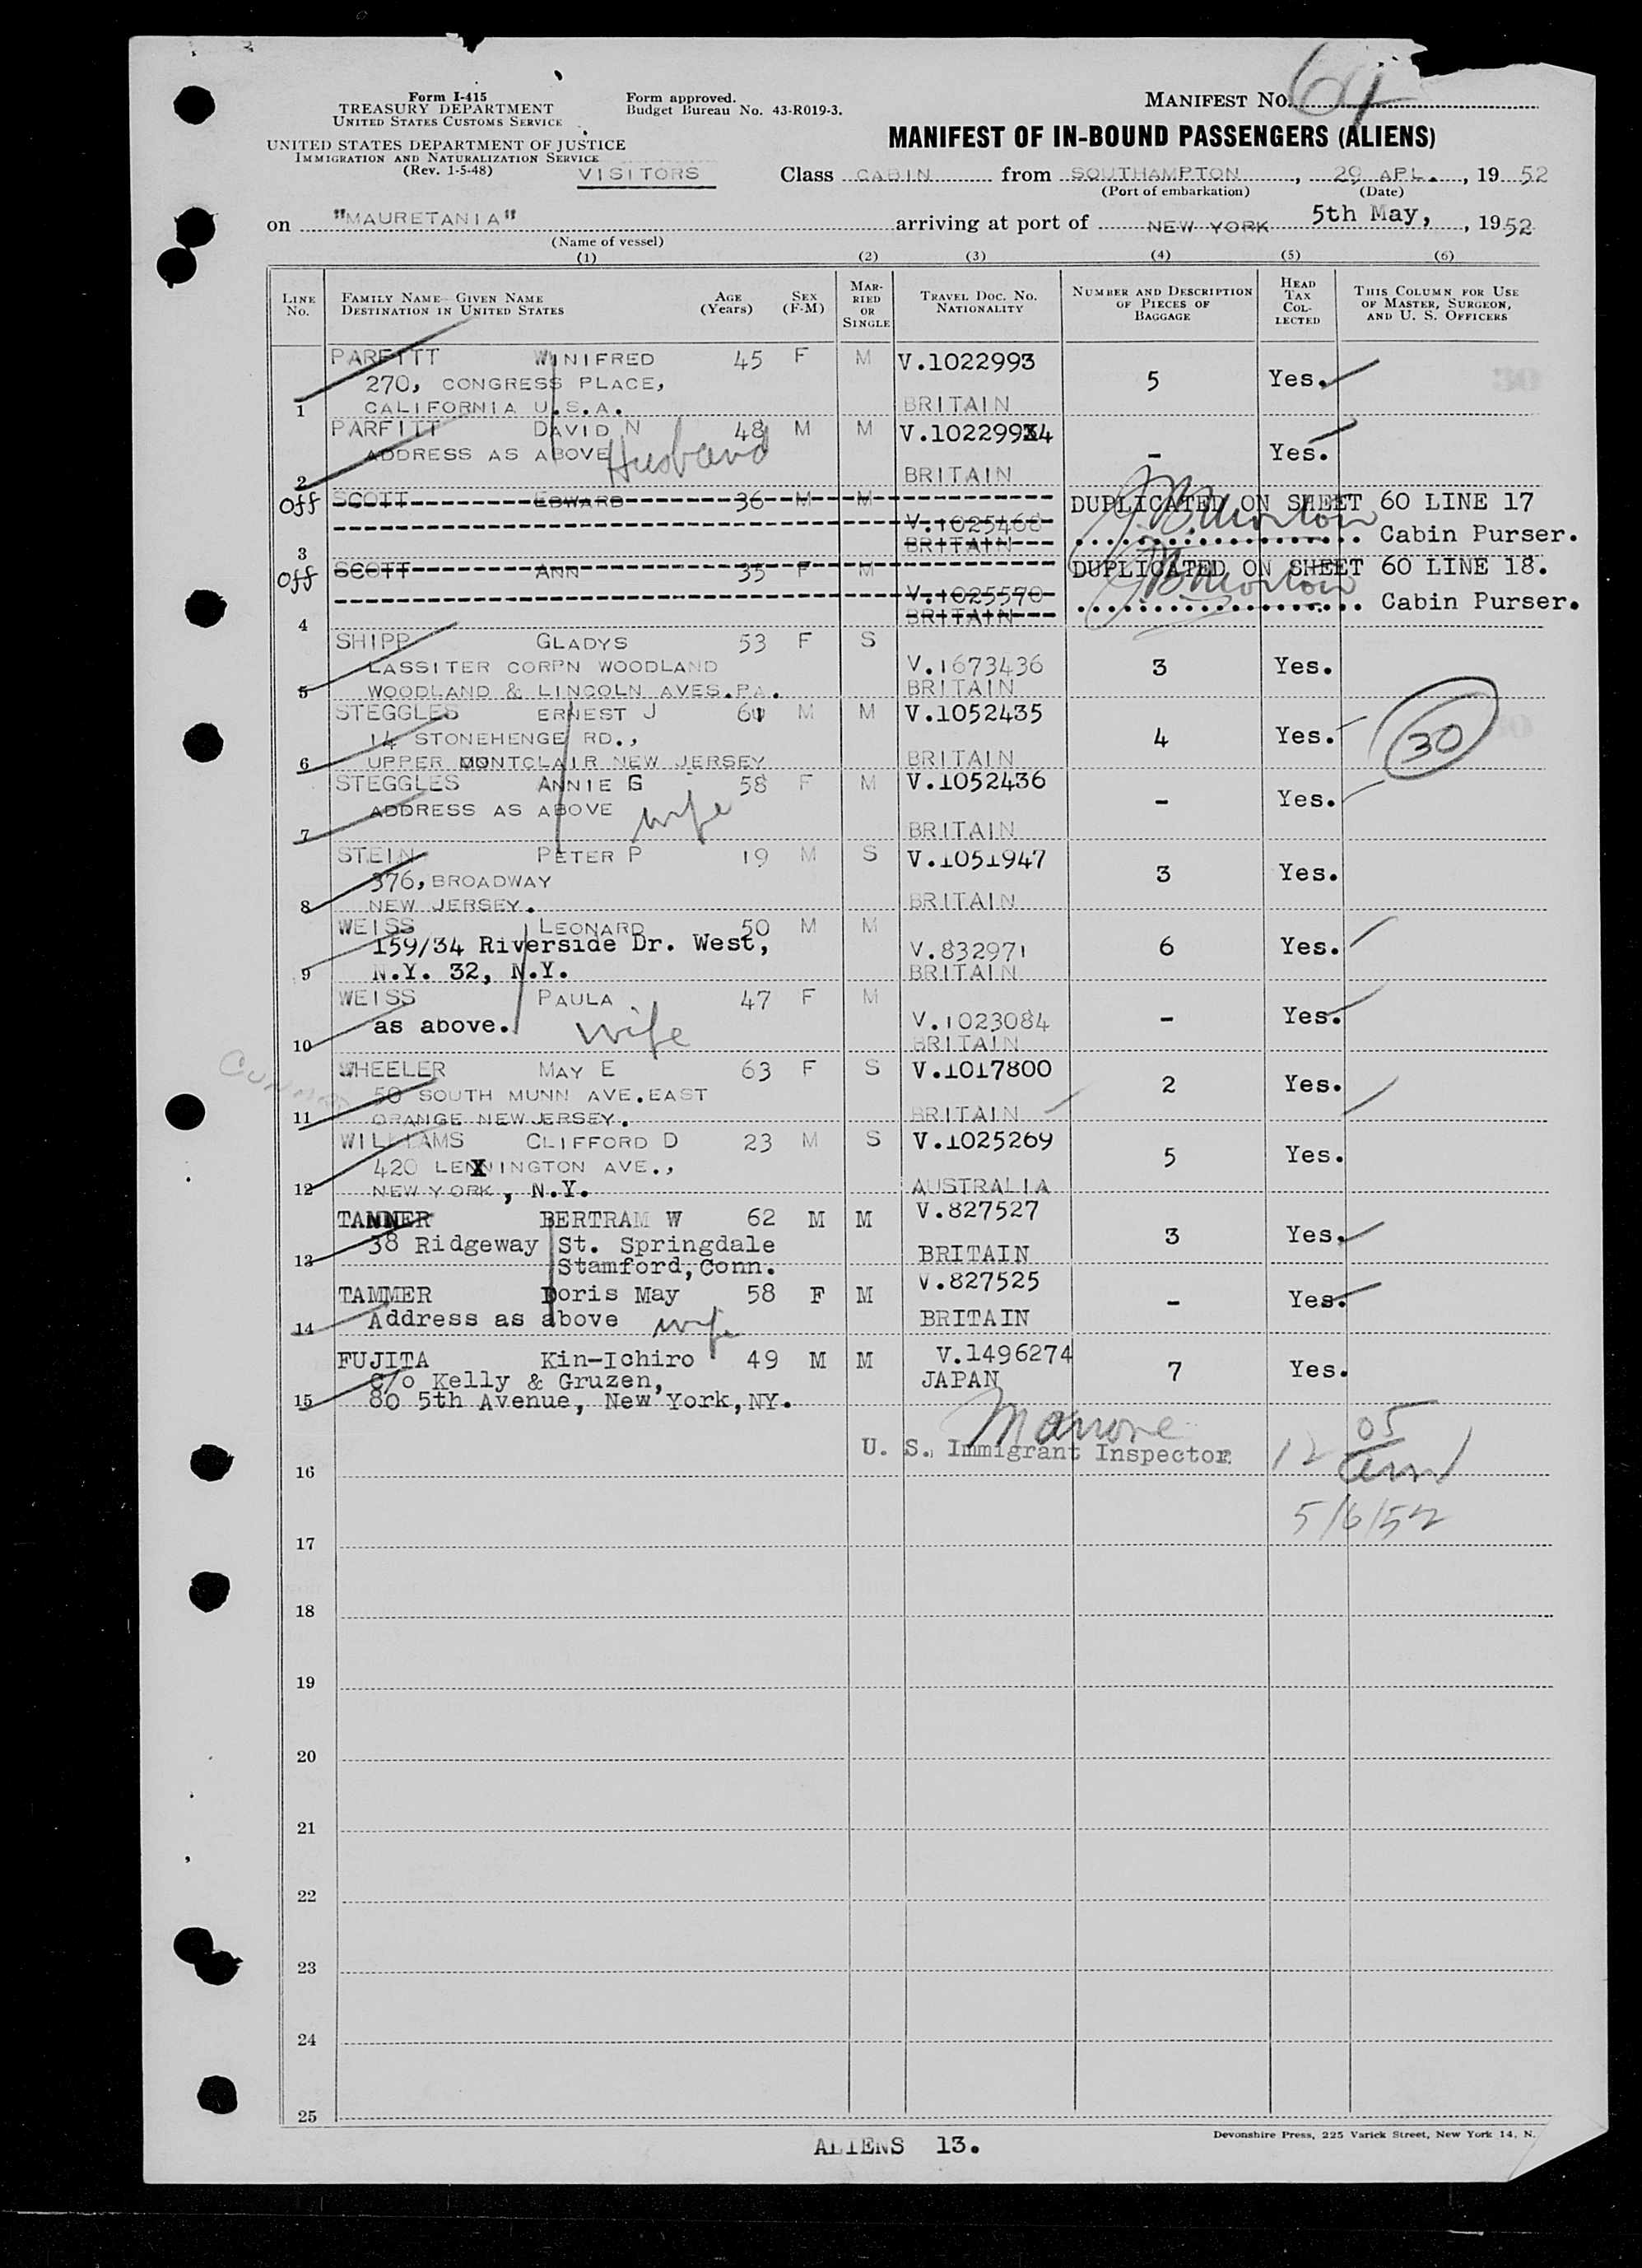 Form I-415
TREASURY DEPARTMENT
UNITED STATES CUSTOMS SERVICE
UNITED STATES DEPARTMENT OF JUSTICE
IMMIGRATION AND NATURALIZATION SERVICE
(Rev. 1-5-48)
Form approved.
Budget Bureau No. 43-R019-3.
MANIFEST NO. 61
MANIFEST OF IN-BOUND PASSENGERS (ALIENS)
VISITORS Class CABIN from SOUTHAMPTON, 29 APL., 1952
(Port of embarkation) (Date)
on "MAURETANIA" arriving at port of NEW YORK 5th May, , 1952
(Name of vessel)
(1) (2) (3) (4) (5) (6)
LINE NO. FAMILY NAME—GIVEN NAME DESTINATION IN UNITED STATES AGE (YEARS) SEX (F-M) MARRIED OR SINGLE TRAVEL DOC. NO. NATIONALITY NUMBER AND DESCRIPTION OF PIECES OF BAGGAGE HEAD TAX COLLECTED THIS COLUMN FOR USE OF MASTER, SURGEON, AND U. S. OFFICERS
PARFITT WINIFRED 45 F M V.1022993
270, CONGRESS PLACE, 5 Yes.
1 CALIFORNIA U.S.A. BRITAIN
PARFITT DAVID N 48 M M V.1022994
ADDRESS AS ABOVE Husband - Yes.
2 BRITAIN
Off SCOTT EDWARD 36 M M DUPLICATED ON SHEET 60 LINE 17
V.1025468 Cabin Purser.
3 BRITAIN
Off SCOTT ANN 35 F M DUPLICATED ON SHEET 60 LINE 18.
V.1025570 Cabin Purser.
4 BRITAIN
SHIPP GLADYS 53 F S
LASSITER CORPN WOODLAND V.1673436 3 Yes.
5 WOODLAND & LINCOLN AVES.PA. BRITAIN
STEGGLES ERNEST J 61 M M V.1052435
14 STONEHENGE RD., 4 Yes. 30
6 UPPER MONTCLAIR NEW JERSEY BRITAIN
STEGGLES ANNIE G 58 F M V.1052436
ADDRESS AS ABOVE wife - Yes.
7 BRITAIN
STEIN PETER P 19 M S V.1051947
376, BROADWAY 3 Yes.
8 NEW JERSEY. BRITAIN
WEISS LEONARD 50 M M
159/34 Riverside Dr. West, V.832971 6 Yes.
9 N.Y. 32, N.Y. BRITAIN
WEISS PAULA 47 F M
as above. wife V.1023084 - Yes.
10 BRITAIN
WHEELER MAY E 63 F S V.1017800
50 SOUTH MUNN AVE.EAST 2 Yes.
11 ORANGE NEW JERSEY. BRITAIN
WILLIAMS CLIFFORD D 23 M S V.1025269
420 LEXINGTON AVE., 5 Yes.
12 NEW YORK, N.Y. AUSTRALIA
TANNER BERTRAM W 62 M M V.827527
38 Ridgeway St. Springdale 3 Yes.
13 Stamford, Conn. BRITAIN
TAMMER Doris May 58 F M V.827525
14 Address as above wife BRITAIN - Yes.
FUJITA Kin-Ichiro 49 M M V.1496274
C/o Kelly & Gruzen, JAPAN 7 Yes.
15 80 5th Avenue, New York, NY.
U. S. Immigrant Inspector 12 05
16
5/6/52
17
18
19
20
21
22
23
24
25
ALIENS 13.
Devonshire Press, 225 Varick Street, New York 14, N.